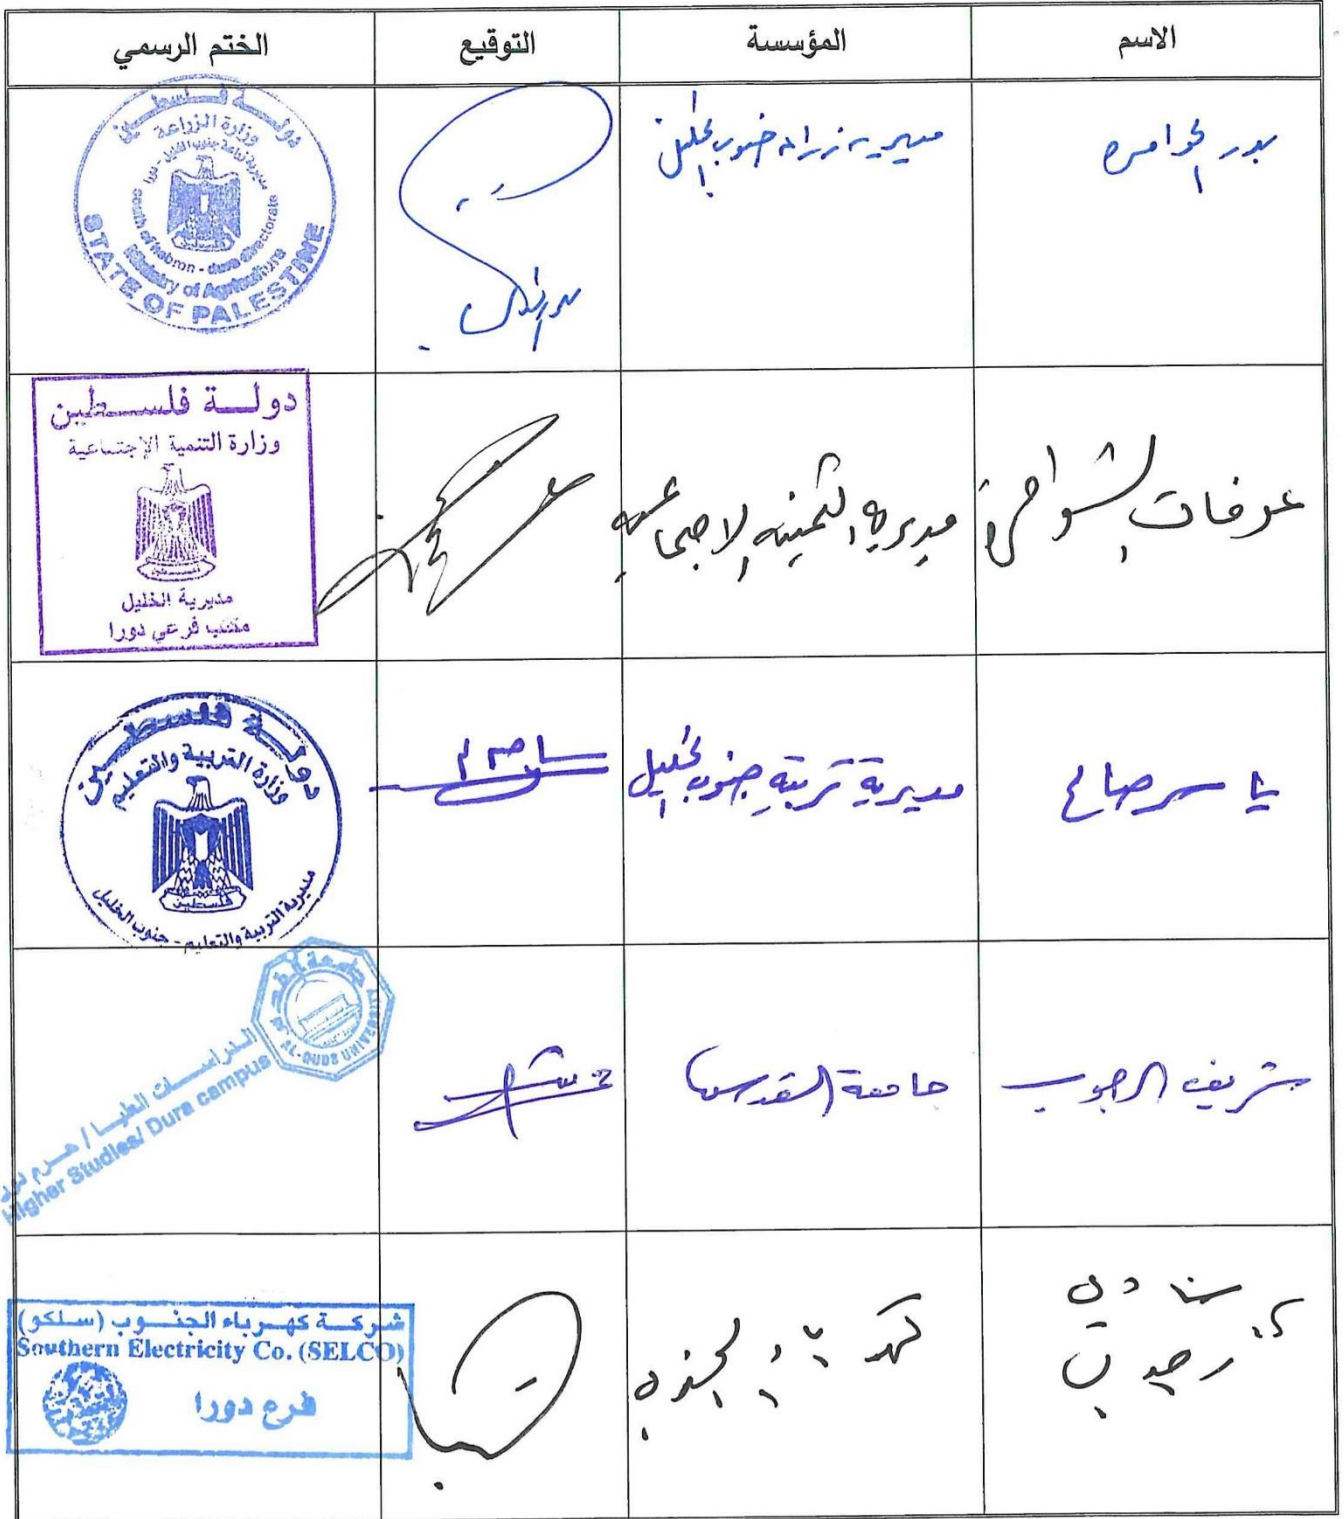 الاسم المؤسسة التوقيع الختم الرسمي
بدر الحوامده مديرية زراعة جنوب الخليل
دولة فلسطين
وزارة الزراعة
مديرية زراعة جنوب الخليل - دورا
south of hebron - dura directorate
Ministry of Agriculture
STATE OF PALESTINE
عرفات الشوامرة مديرية التنمية الاجتماعية
دولة فلسطين
وزارة التنمية الإجتماعية
فلسطين
مديرية الخليل
مكتب فرعي دورا
ياسر صالح مديرية تربية جنوب الخليل
دولة فلسطين
وزارة التربية والتعليم
فلسطين
مديرية التربية والتعليم - جنوب الخليل
شريف الرجوب جامعة القدس
جامعة القدس
AL-QUDS UNIVERSITY
الدراسات العليا / حرم دورا
Higher Studies/ Dura campus
كهرباء الجنوب
شركة كهرباء الجنوب (سلكو)
Southern Electricity Co. (SELCO)
فرع دورا